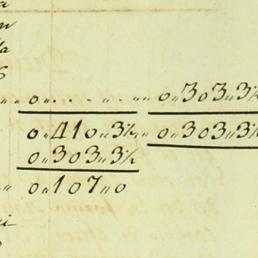 0 . . . . . 0„303„3½
0„410„3½ 0„303„3½
0„303„3½
0„107„0